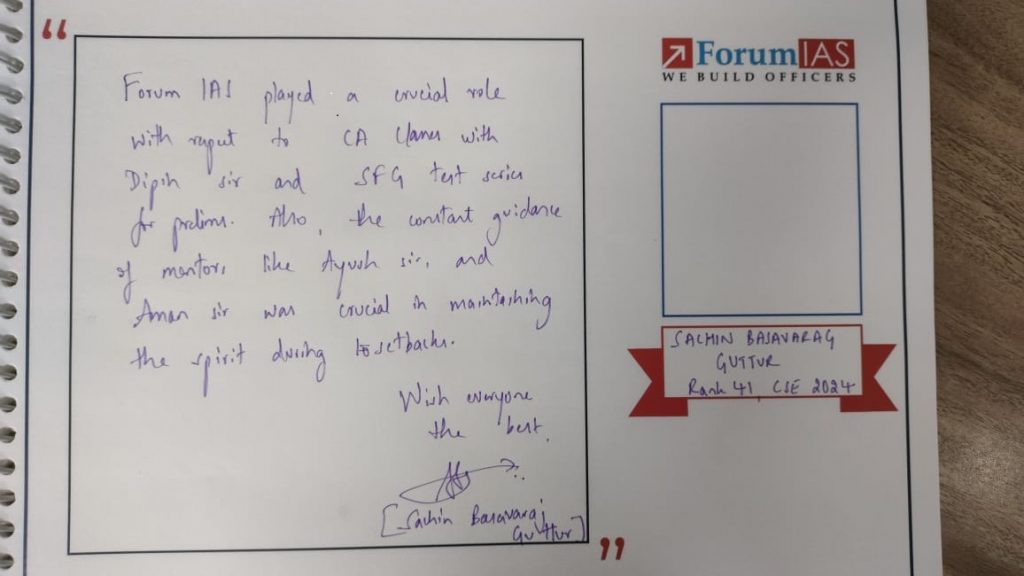 Forum IAS played a crucial role
with respect to CA classes with
Dipin sir and SFG test series
for prelims. Also, the constant guidance
of mentors like Ayush sir, and
Aman sir was crucial in maintaining
the spirit during setbacks.
Wish everyone
the best.
[Sachin Basavaraj
Guttur]
ForumIAS
WE BUILD OFFICERS
SACHIN BASAVARAG
GUTTUR
Rank 41, CSE 2024